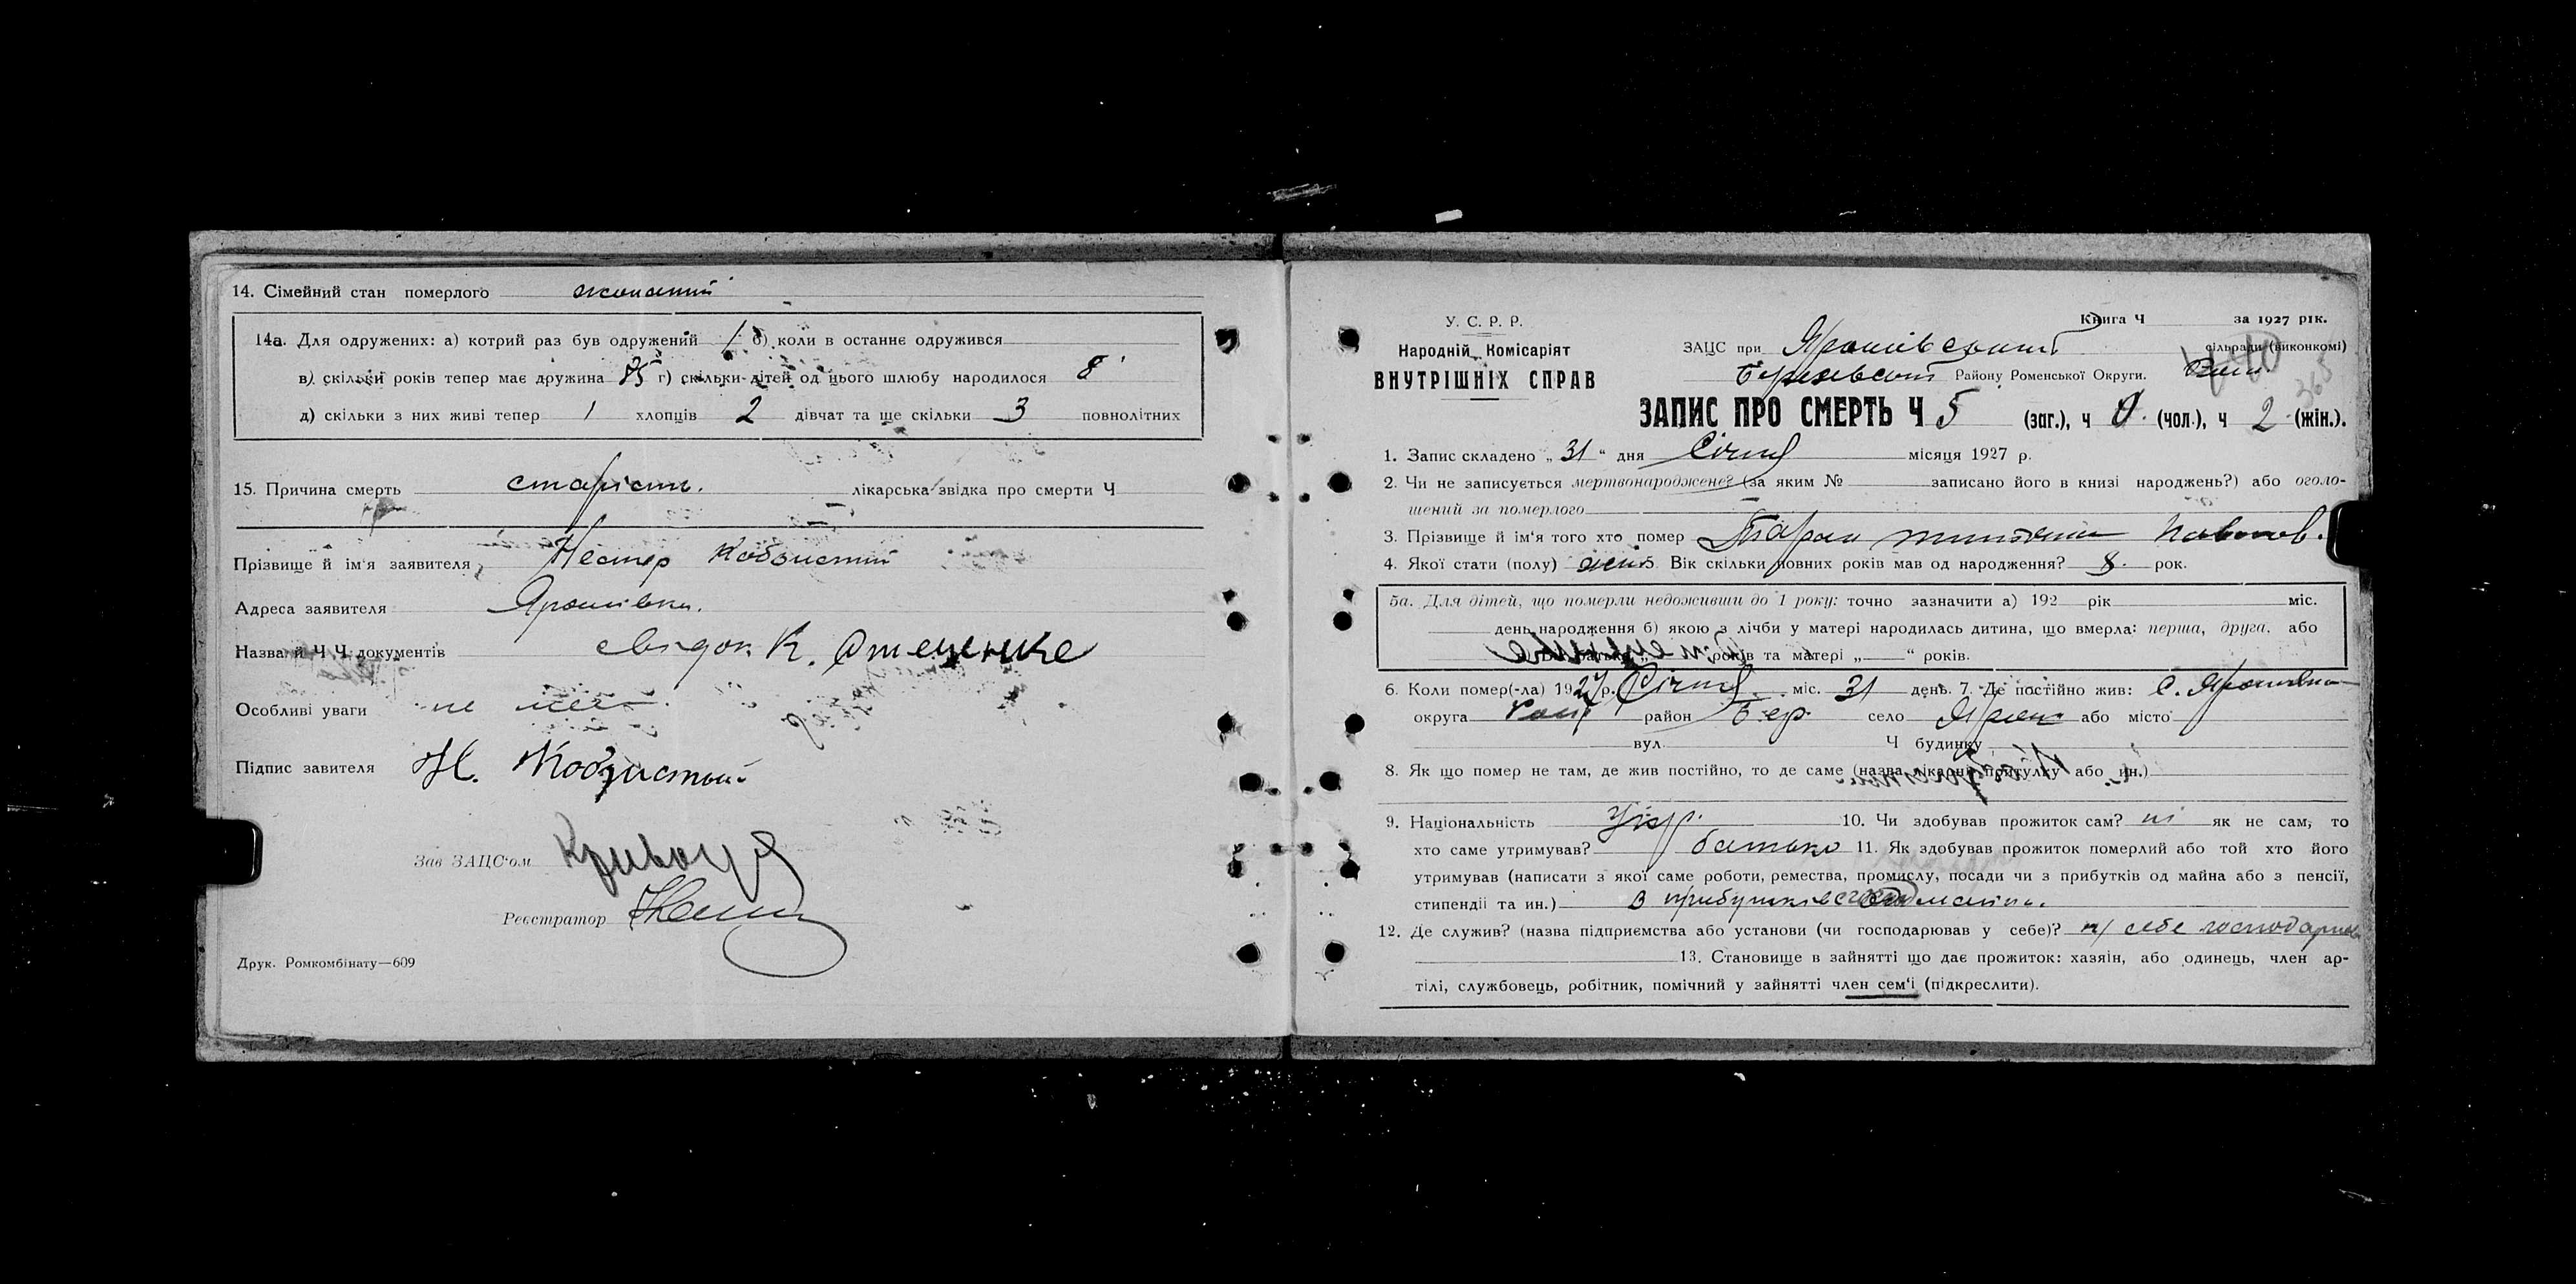 14. Сімейний стан померлого жонатий
14а. Для одружених: а) котрий раз був одружений 1 б) коли в останнє одружився
в) скільки років тепер має дружина 75 г) скільки дітей од цього шлюбу народилося 8
д) скільки з них живі тепер 1 хлопців 2 дівчат та ще скільки 3 повнолітних
15. Причина смерть старість. лікарська звідка про смерти Ч
Прізвище й ім'я заявителя Нестер Кобзистий
Адреса заявителя Ярошівка.
Назва й Ч Ч документів свідок К. Стеценке
Особливі уваги не має
Підпис завителя Н. Кобзистый
Зав ЗАЦС'ом
Реєстратор
Друк. Ромкомбінату—609
У. С. Р. Р.
Народній Комісаріят
ВНУТРІШНІХ СПРАВ
Книга Ч за 1927 рік.
ЗАЦС при Ярошівській сільради (виконкомі)
Району Роменської Округи.
368
ЗАПИС ПРО СМЕРТЬ Ч 5 (заг.), ч (чол.), ч 2 (жін.).
1. Запис складено „ 31 " дня Січня місяця 1927 р.
2. Чи не записується мертвонароджене? (за яким № записано його в книзі народжень?) або оголо-
шений за померлого
3. Прізвище й ім'я того хто помер Таран Павлов.
4. Якої стати (полу) жін 5. Вік скільки повних років мав од народження? 8. рок.
5а. Для дітей, що померли недоживши до 1 року: точно зазначити а) 192 рік міс.
день народження б) якою з лічби у матері народилась дитина, що вмерла: перша, друга, або
батька „ років та матері „ " років.
6. Коли помер(-ла) 1927 р. Січня міс. 31 день. 7. Де постійно жив: С. Ярошівка
округа Ром район Бер. село Ярош або місто
вул. Ч будинку
8. Як що помер не там, де жив постійно, то де саме (назва лікарні, притулку або ин.)
9. Національність Укр. 10. Чи здобував прожиток сам? ні як не сам, то
хто саме утримував? батько 11. Як здобував прожиток померлий або той хто його
утримував (написати з якої саме роботи, ремества, промислу, посади чи з прибутків од майна або з пенсії,
стипендії та ин.) з прибутків
12. Де служив? (назва підприємства або установи (чи господарював у себе)? у себе господарював
13. Становище в зайнятті що дає прожиток: хазяін, або одинець, член ар-
тілі, службовець, робітник, помічний у зайнятті член сем'і (підкреслити).